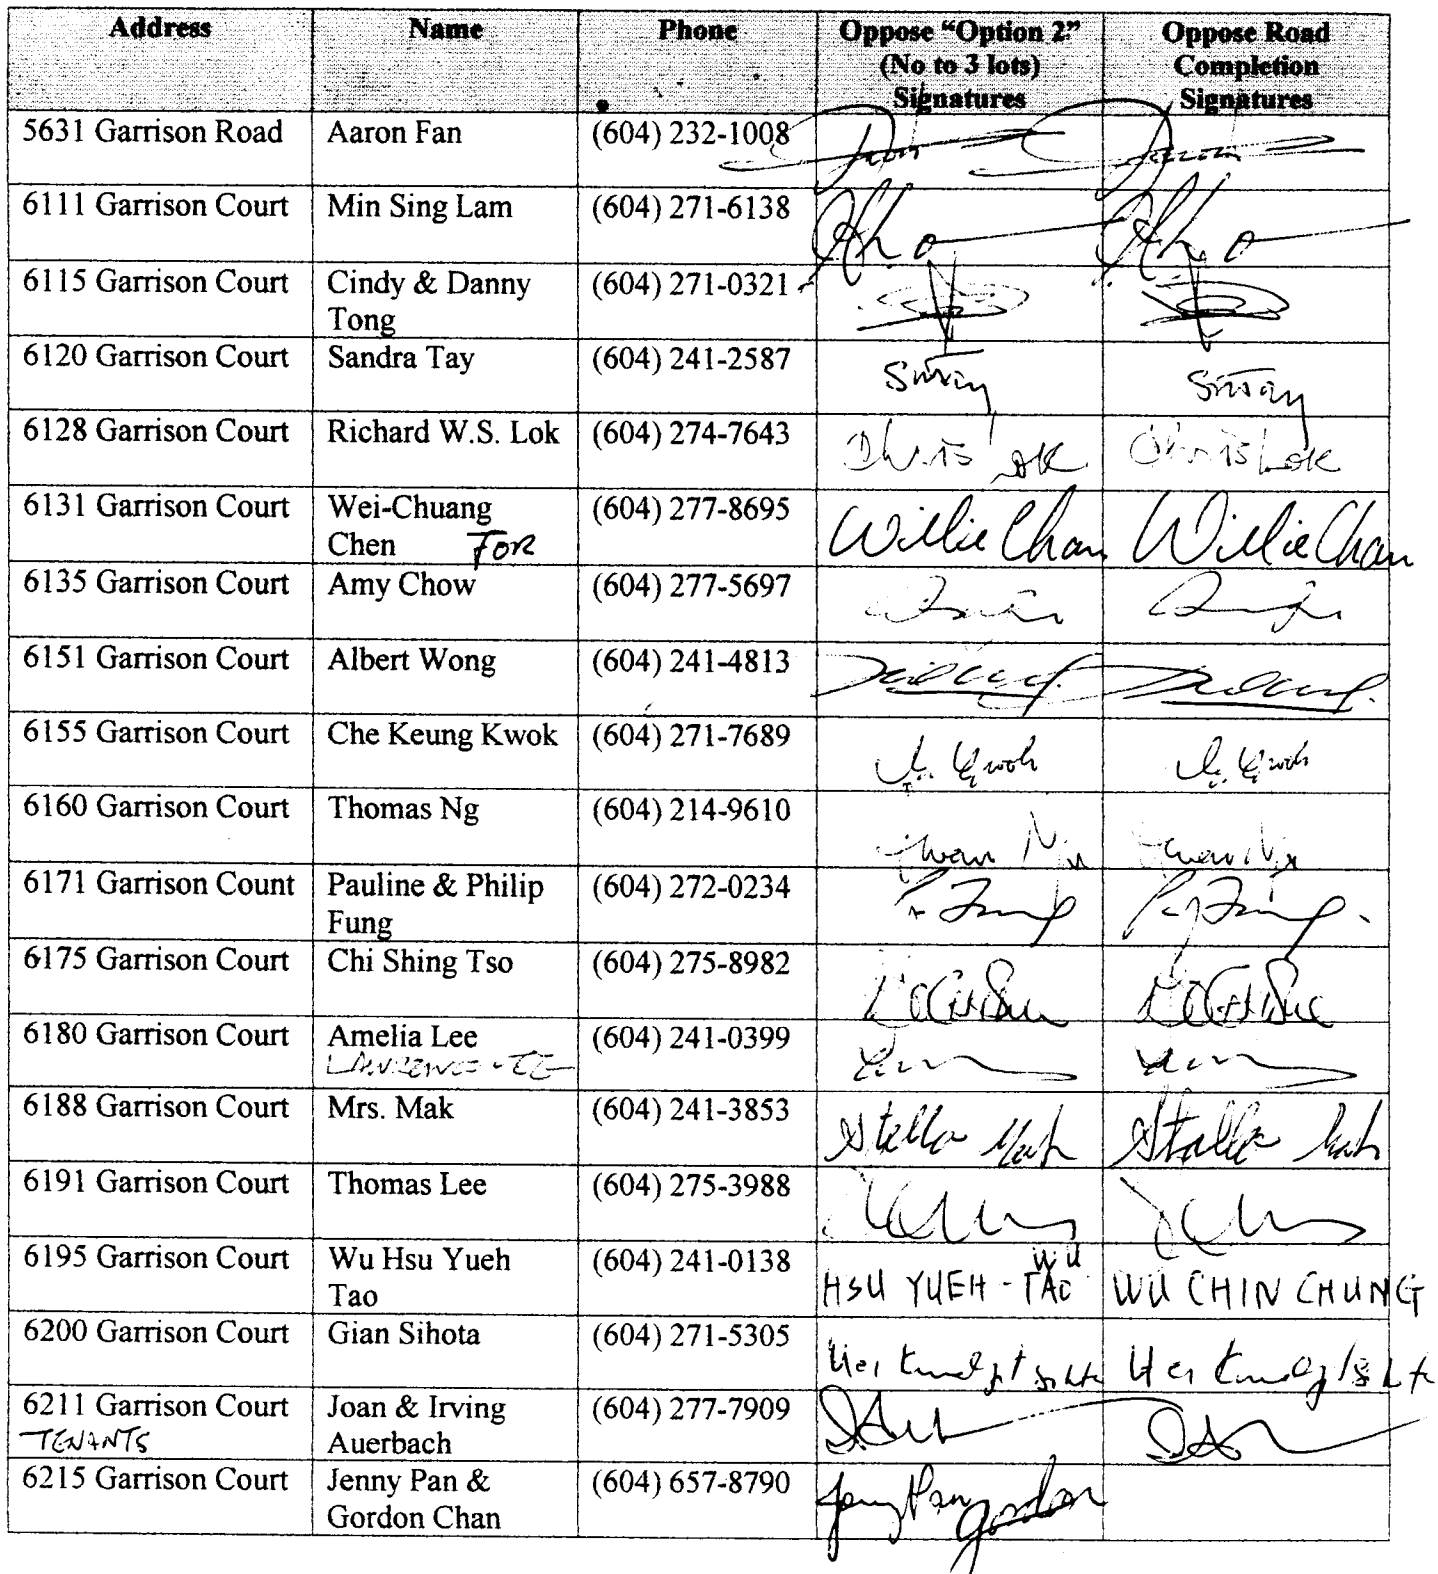 Address Name Phone Oppose “Option 2” Oppose Road
(No to 3 lots) Completion
Signatures Signatures
5631 Garrison Road Aaron Fan (604) 232-1008
6111 Garrison Court Min Sing Lam (604) 271-6138
6115 Garrison Court Cindy & Danny (604) 271-0321
Tong
6120 Garrison Court Sandra Tay (604) 241-2587
6128 Garrison Court Richard W.S. Lok (604) 274-7643
6131 Garrison Court Wei-Chuang (604) 277-8695
Chen FOR Willie Chan Willie Chan
6135 Garrison Court Amy Chow (604) 277-5697
6151 Garrison Court Albert Wong (604) 241-4813
6155 Garrison Court Che Keung Kwok (604) 271-7689
6160 Garrison Court Thomas Ng (604) 214-9610
6171 Garrison Count Pauline & Philip (604) 272-0234
Fung P. Fung
6175 Garrison Court Chi Shing Tso (604) 275-8982
6180 Garrison Court Amelia Lee (604) 241-0399
6188 Garrison Court Mrs. Mak (604) 241-3853
Stella Mak Stella Mak
6191 Garrison Court Thomas Lee (604) 275-3988
6195 Garrison Court Wu Hsu Yueh (604) 241-0138 WU
Tao HSU YUEH-TAO WU CHIN CHUNG
6200 Garrison Court Gian Sihota (604) 271-5305
6211 Garrison Court Joan & Irving (604) 277-7909
TENANTS Auerbach
6215 Garrison Court Jenny Pan & (604) 657-8790 Jenny Pan
Gordon Chan Gordon